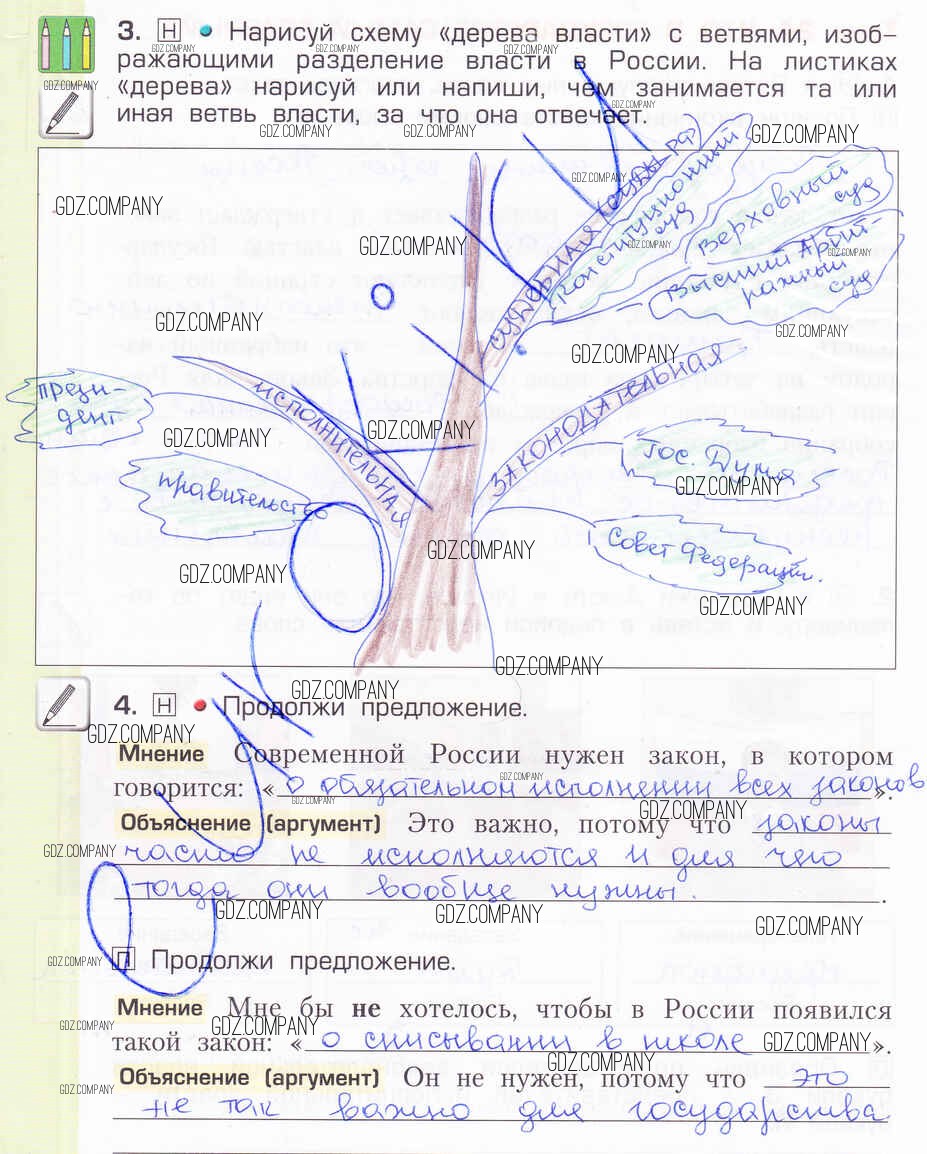 3. Н • Нарисуй схему «дерева власти» с ветвями, изоб-
ражающими разделение власти в России. На листиках
«дерева» нарисуй или напиши, чем занимается та или
иная ветвь власти, за что она отвечает.
СУДЕБНАЯ СУДЫ РФ
Конституционный
суд
Верховный
суд
Высший Арбит-
ражный
суд
ИСПОЛНИТЕЛЬНАЯ
През-
дент
правительство
ЗАКОНОДАТЕЛЬНАЯ
Гос. Дума
Совет Федерации.
4. Н • Продолжи предложение.
Мнение Современной России нужен закон, в котором
говорится: «о обязательном исполнении всех законов».
Объяснение (аргумент) Это важно, потому что законы
часто не исполняются и для чего
тогда они вообще нужны.
П Продолжи предложение.
Мнение Мне бы не хотелось, чтобы в России появился
такой закон: «о списывании в школе».
Объяснение (аргумент) Он не нужен, потому что это
не так важно для государства
GDZ.COMPANY